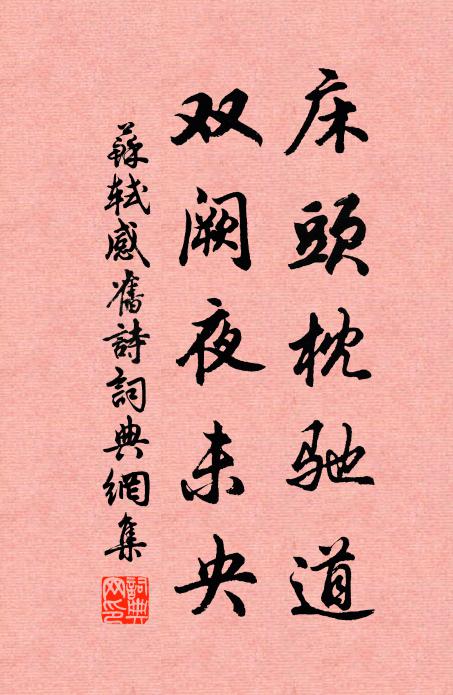 床頭枕驰道
双阙夜未央
蘇軾感舊詩詞典網集
詞典
网印